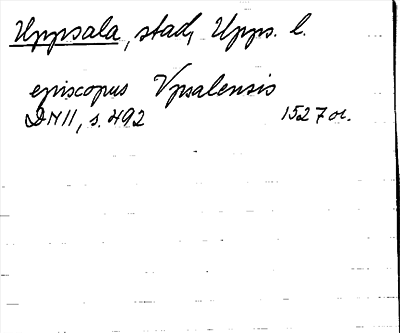 Uppsala, stad, Upps. l.
episcopus Vpsalensis
DN II, s. 492 1527 or.